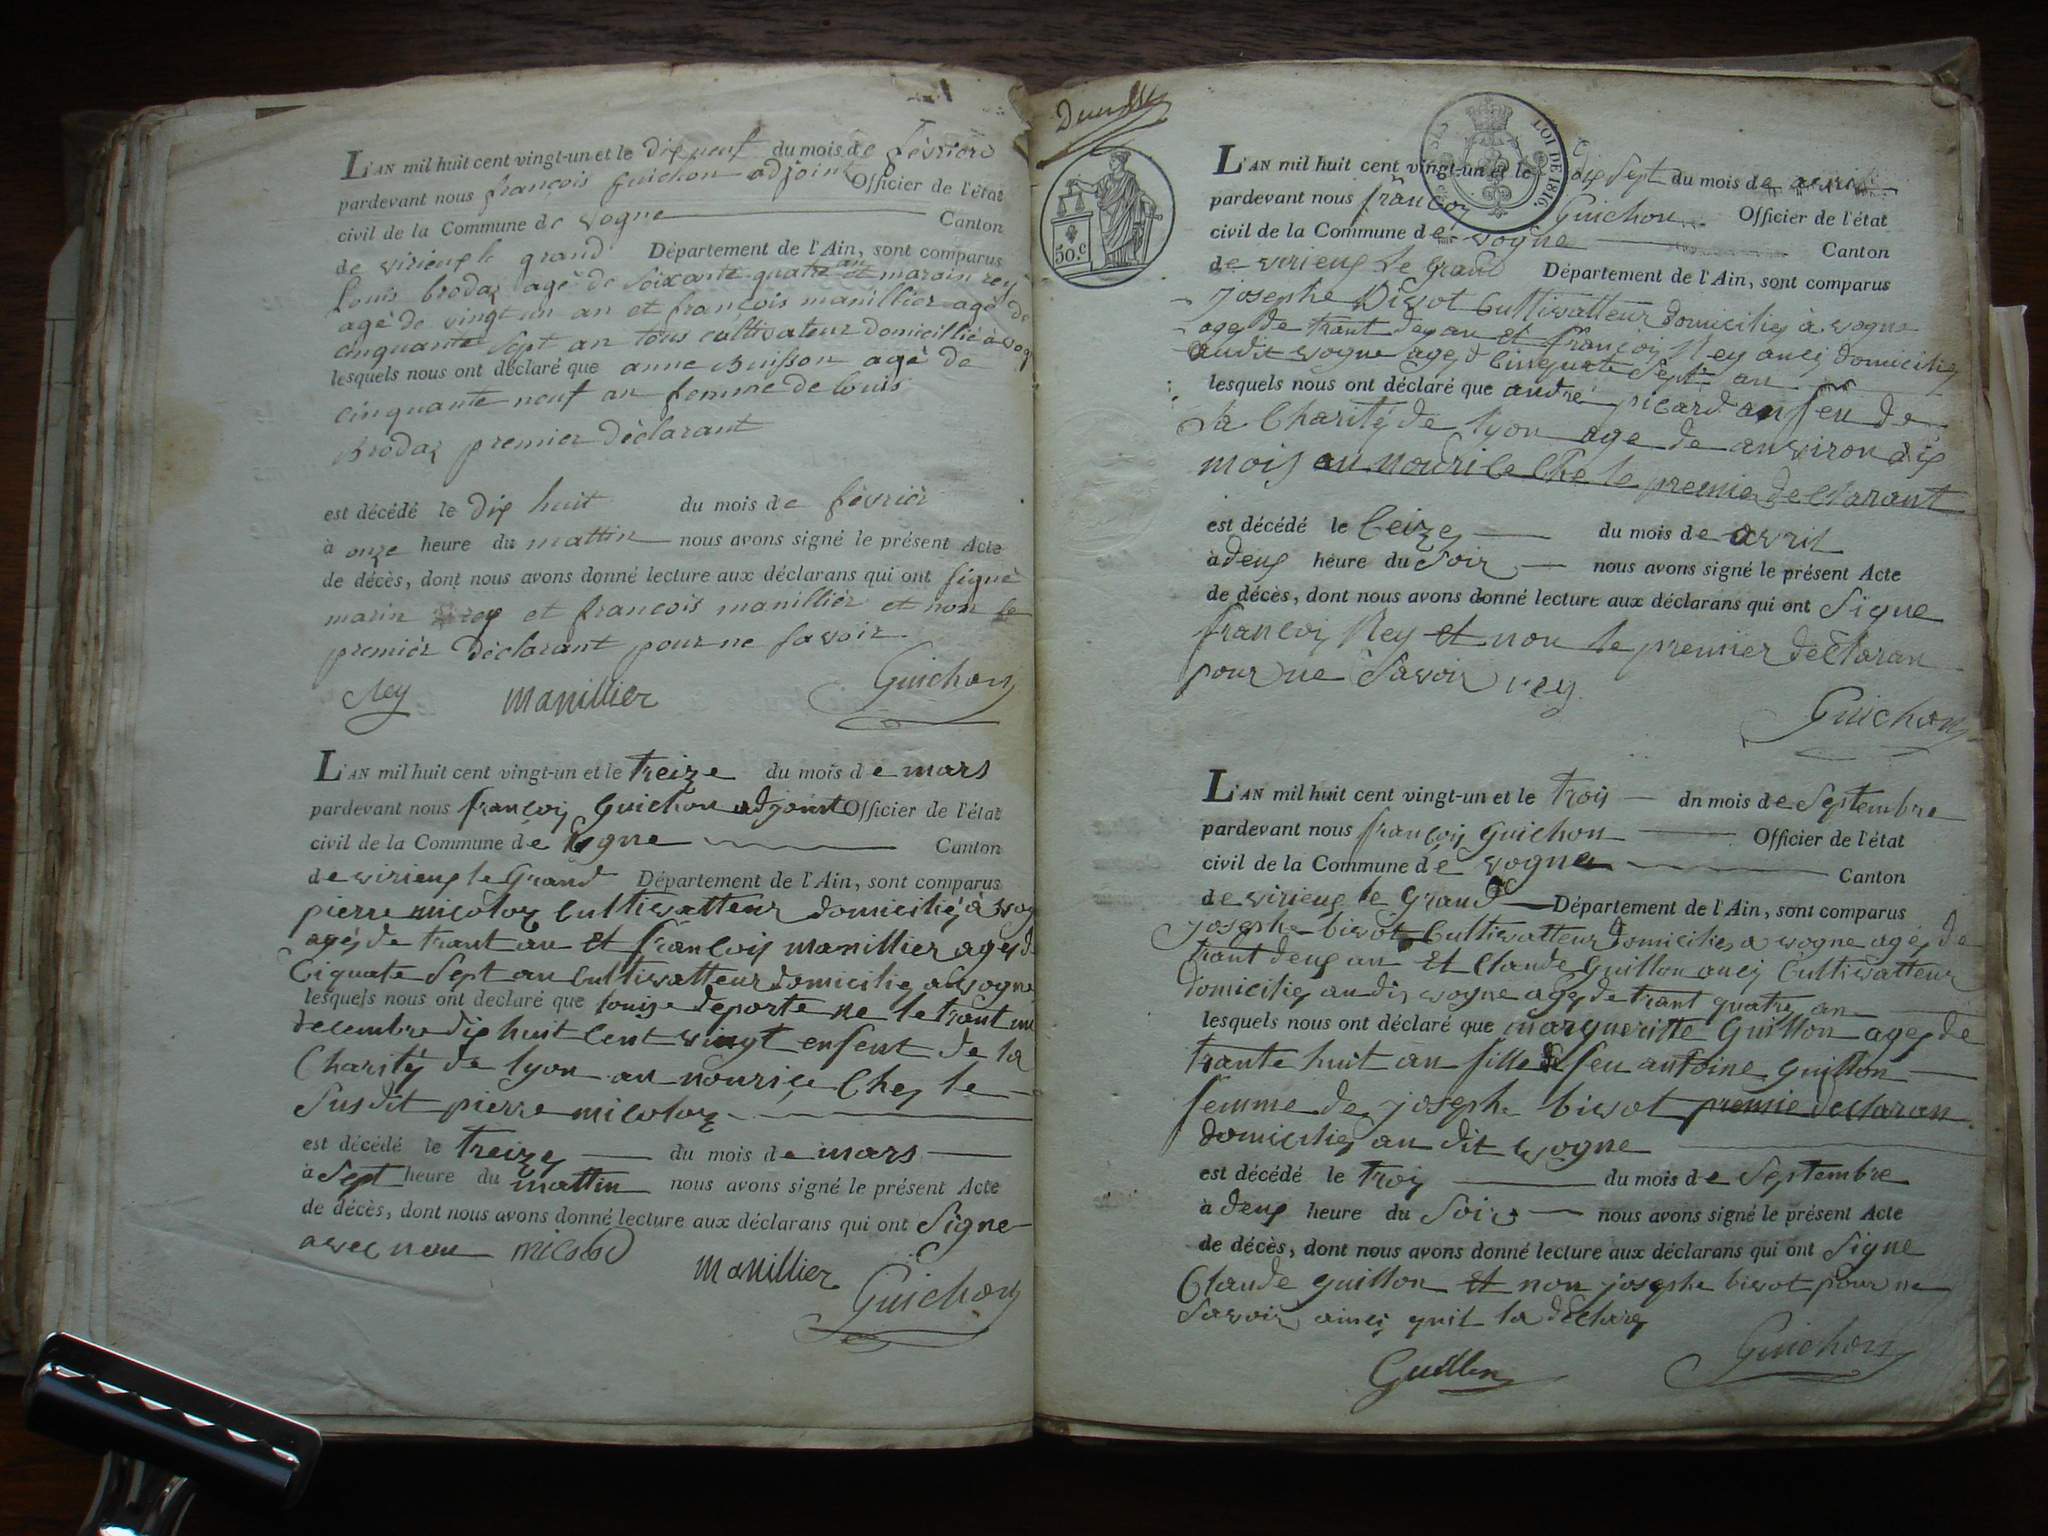 L'AN mil huit cent vingt-un et le dix neuf du mois de fevriere
pardevant nous françois Guichon adjoint Officier de l'état
civil de la Commune de vogne Canton
de virieux le grand Département de l'Ain, sont comparus
Louis brodaz agé de soixante quatre an et marain rey
agé de vingt un an et françois manillier agé de
cinquante sept an tous cultivateur domicillié à vog
lesquels nous ont déclaré que anne Buisson agé de
cinquante neuf an femme de louis
Brodaz premier déclarant
est décédé le dix huit du mois de fevrier
à onze heure du mattin nous avons signé le présent Acte
de décès, dont nous avons donné lecture aux déclarans qui ont signé
marin rey et francois manilliér et non le
premiér déclarant pour ne savoir
Rey manillier Guichon
L'AN mil huit cent vingt-un et le treize du mois de mars
pardevant nous françoiy Guichon adjoint Officier de l'état
civil de la Commune de vogne Canton
de virieux le Grand Département de l'Ain, sont comparus
pierre micoloz Cultivatteur domicilié à vog
agés de trant an et françois manillier agés d
Ciquate sept an Cultivatteur domicilié a vogne
lesquels nous ont declaré que louise deporte ne le trant un
decembre dix huit Cent vingt enfent de la
Charité de lyon an nourice Chez le
susdit pierre micoloz
est décédé le treize du mois de mars
à sept heure du mattin nous avons signé le présent Acte
de décès, dont nous avons donné lecture aux déclarans qui ont Signe
avec nou micolod manillier Guichon
50.c
LOI DE 1816.
L'AN mil huit cent vingt-un et le dix sept du mois de avril
pardevant nous françoy Guichon Officier de l'état
civil de la Commune de vogne Canton
de virieux le Grand Département de l'Ain, sont comparus
josephe Bivot Cultivatteur domicilies à vogne
ages de trant deux an et françois Rey auci domicilies
audit vogne ages d Cinquate sept an
lesquels nous ont déclaré que andré picard anfeu de
la Charité de lyon age de anviron dix
mois an nourice Ché le premie declarant
est décédé le Ceize du mois de avril
à deux heure du soir nous avons signé le présent Acte
de décès, dont nous avons donné lecture aux déclarans qui ont Signe
françois Rey et non le premier declaran
pour ne savoir rey
Guichon
L'AN mil huit cent vingt-un et le trois dn mois de Septembre
pardevant nous françois Guichon Officier de l'état
civil de la Commune de vogne Canton
de virieux le Grand Département de l'Ain, sont comparus
josephe bivot Cultivatteur domicilies a vogne agés de
trant deux an et Claude Guillon auci Cultivatteur
domicilies au dit vogne ages de trant quatre an
lesquels nous ont déclaré que margueritte Guillon ages de
trante huit an fille de feu antoine Guillon
femme de josephe bivot premie declaran
domicilies au dit vogne
est décédé le trois du mois de Septembre
à deux heure du soir nous avons signé le présent Acte
de décès, dont nous avons donné lecture aux déclarans qui ont Signe
Claude Guillon et non josephe bivot pour ne
savoir ainci quil la declare
Guillon Guichon